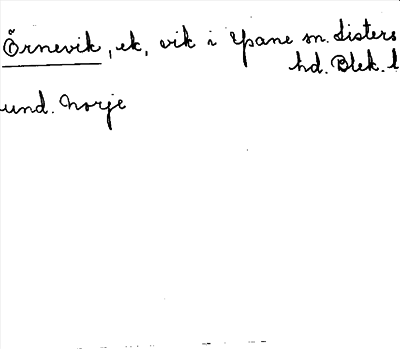 Örnevik, ek, vik i Ysane sn. Listers
hd. Blek. l
und. Norje